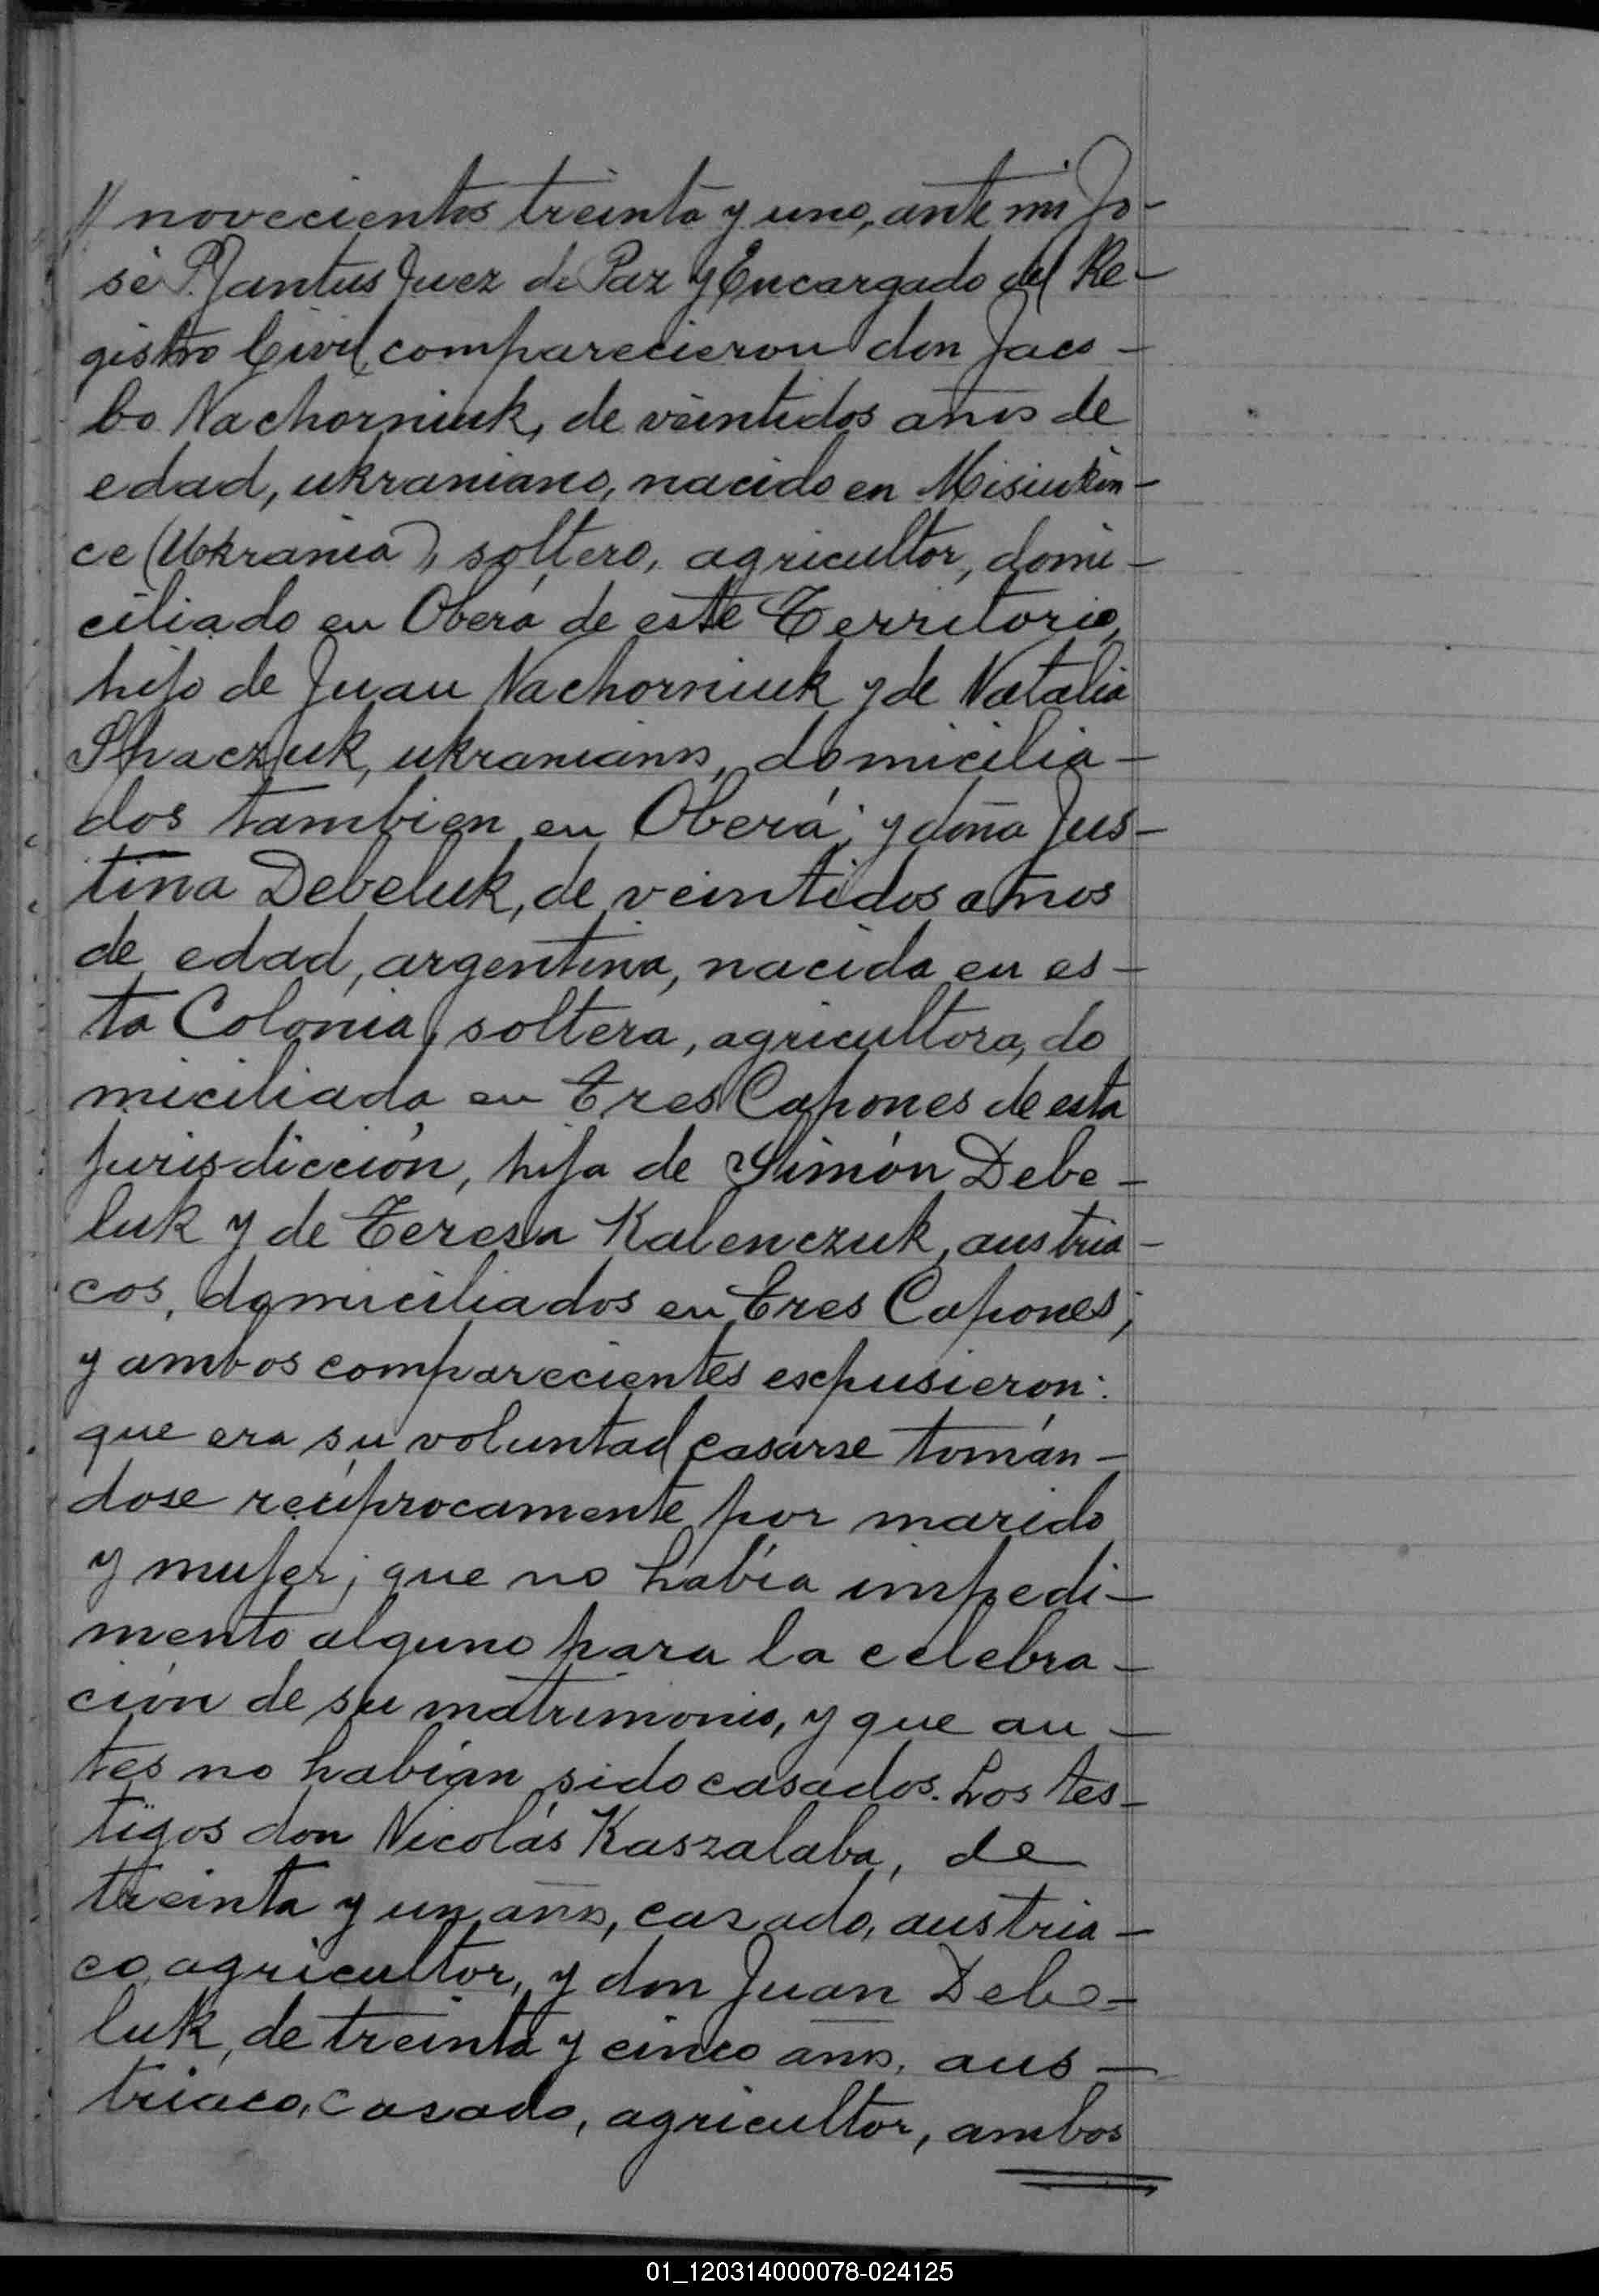 // novecientos treinta y uno, ante mi Jo-
sé P. Jantus Juez de Paz y Encargado del Re-
gistro Civil, comparecieron don Jaco-
bo Nachorniuk, de veintidos años de
edad, ukraniano, nacido en Misiukin-
ce (Ukrania), soltero, agricultor, domi-
ciliado en Oberá de este Territorio,
hijo de Juan Nachorniuk y de Natalia
Shaczuk, ukranianos, domicilia-
dos tambien en Oberá; y doña Jus-
tina Debeluk, de veintidos años
de edad, argentina, nacida en es-
ta Colonia, soltera, agricultora, do
miciliada en Tres Capones de esta
jurisdicción, hija de Simón Debe-
luk y de Teresa Kalenczuk, austria-
cos, domiciliados en Tres Capones;
y ambos comparecientes expusieron:
que era su voluntad casarse tomán-
dose recíprocamente por marido
y mujer; que no había impedi-
mento alguno para la celebra-
ción de su matrimonio, y que an-
tes no habían sido casados. Los tes-
tigos don Nicolás Kaszalaba, de
treinta y un años, casado, austria-
co, agricultor, y don Juan Debe-
luk, de treinta y cinco años, aus-
triaco, casado, agricultor, ambos
01_120314000078-024125